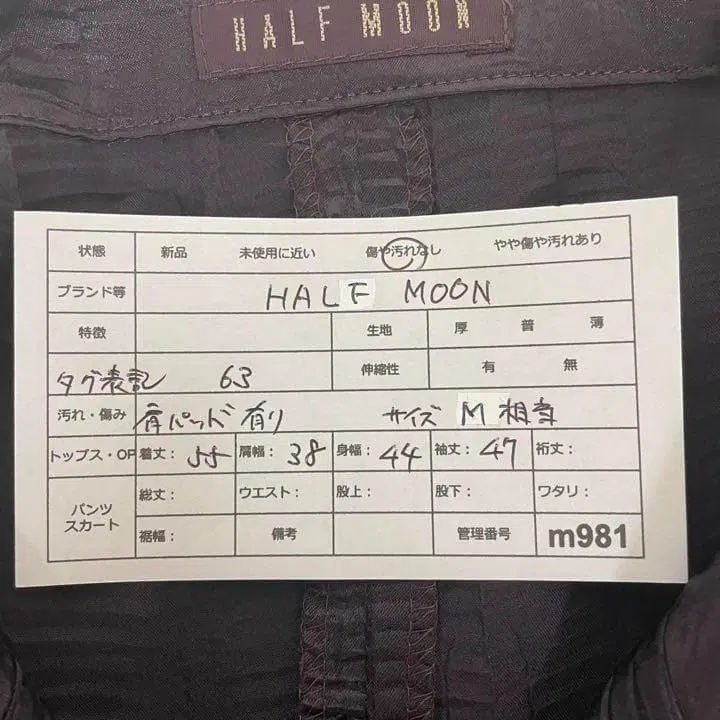 HALF MOON
状態 新品 未使用に近い 傷や汚れなし やや傷や汚れあり
ブランド等 HALF MOON
特徴 生地 厚 普 薄
タグ表記 63 伸縮性 有 無
汚れ・傷み 肩パッド有り サイズ M 相当
トップス・OP 着丈: 55 肩幅: 38 身幅: 44 袖丈: 47 裄丈:
パンツ スカート 総丈: ウエスト: 股上: 股下: ワタリ:
裾幅: 備考 管理番号 m981